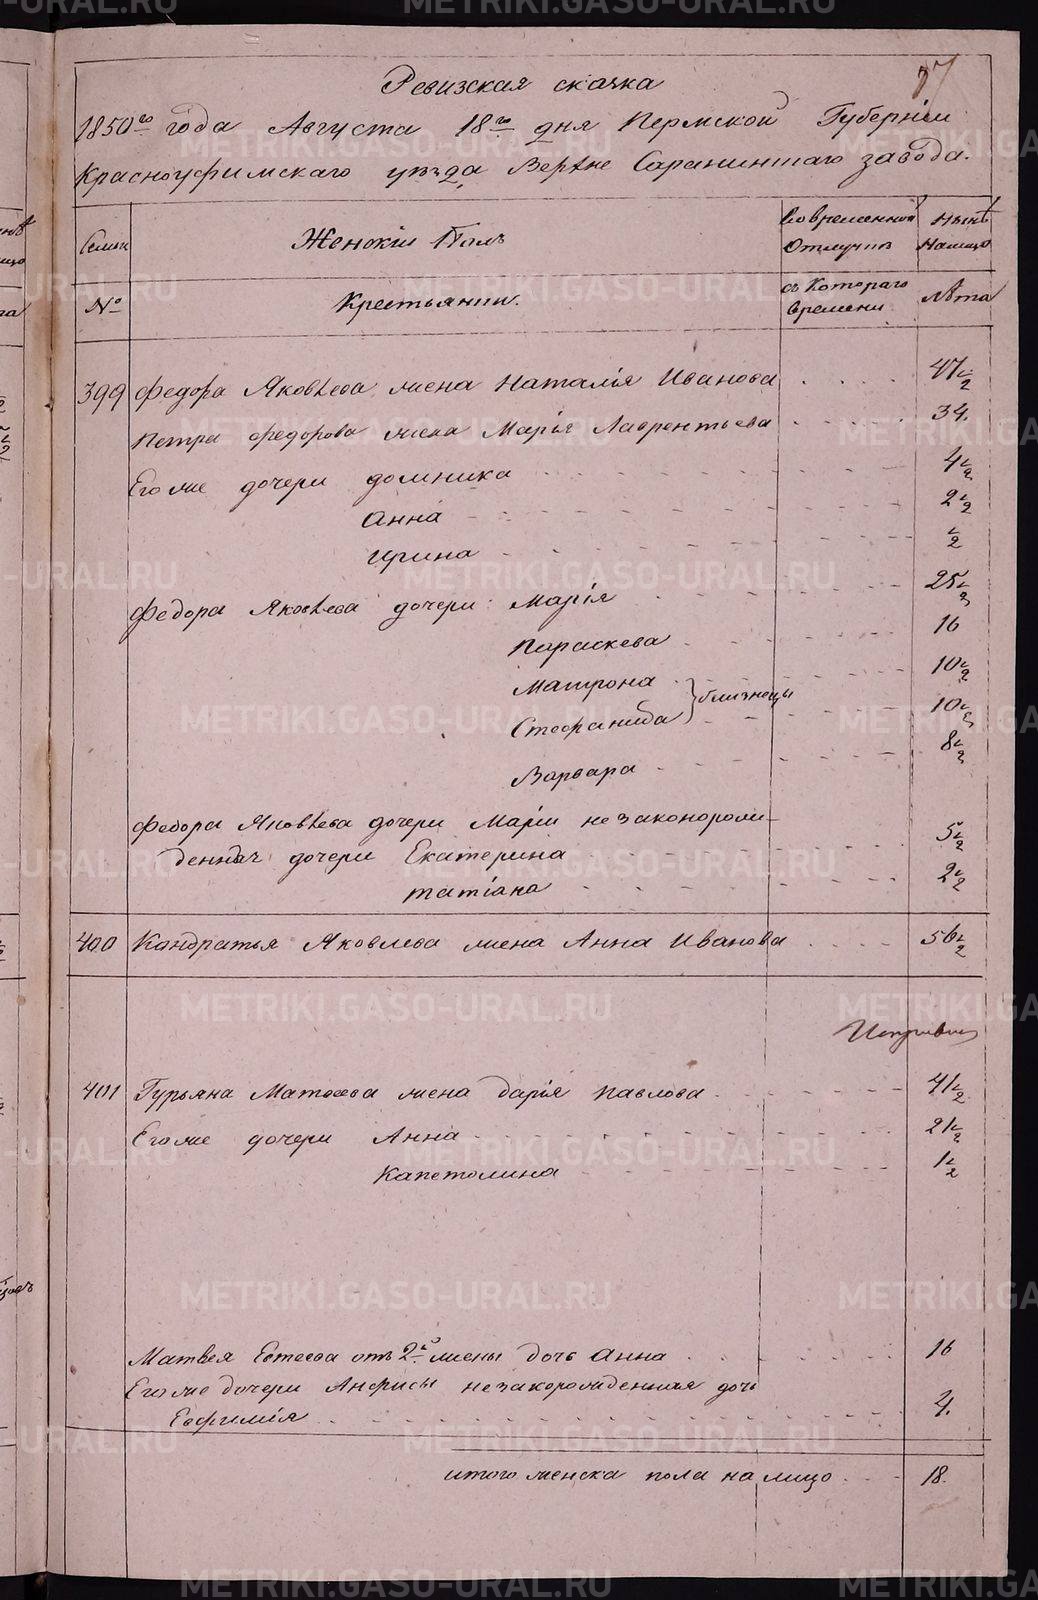 Ревизская скачка
1850го года Августа 18го дня Пермской Губерніи
Красноуфимскаго уѣзда Верхне Саранинскаго завода.
Семьи
Женскіи Полъ
Во временной Отлучкѣ
Нынѣ Налицо
№
Крестьянии.
съ Котораго времени
лѣта
399 Федора Яковлева жена Наталія Иванова 47½
Петра Федорова жена Марія Лаврентьева 34.
Его же дочери домника 4½
Анна 2½
Ирина ½
Федора Яковлева дочери Марія 25½
Параскева 16
Матрона 10½
близнецы
Стефанида 10½
Варвара 8½
Федора Яковлева дочери Маріи незаконорож-
денныя дочери Екатерина 5½
татіана 2½
400 Кандратья Яковлева жена Анна Иванова 56½
401 Гурьяна Матвеева жена дарія Павлова 41½
Его же дочери Анна 21½
Капетолина 1½
Матвея Евтеева отъ 2й жены дочь Анна 16
Его же дочери Анфисы незакорожденная дочь
Евфимія 4.
итого женска пола на лицо 18.
METRIKI.GASO-URAL.RU